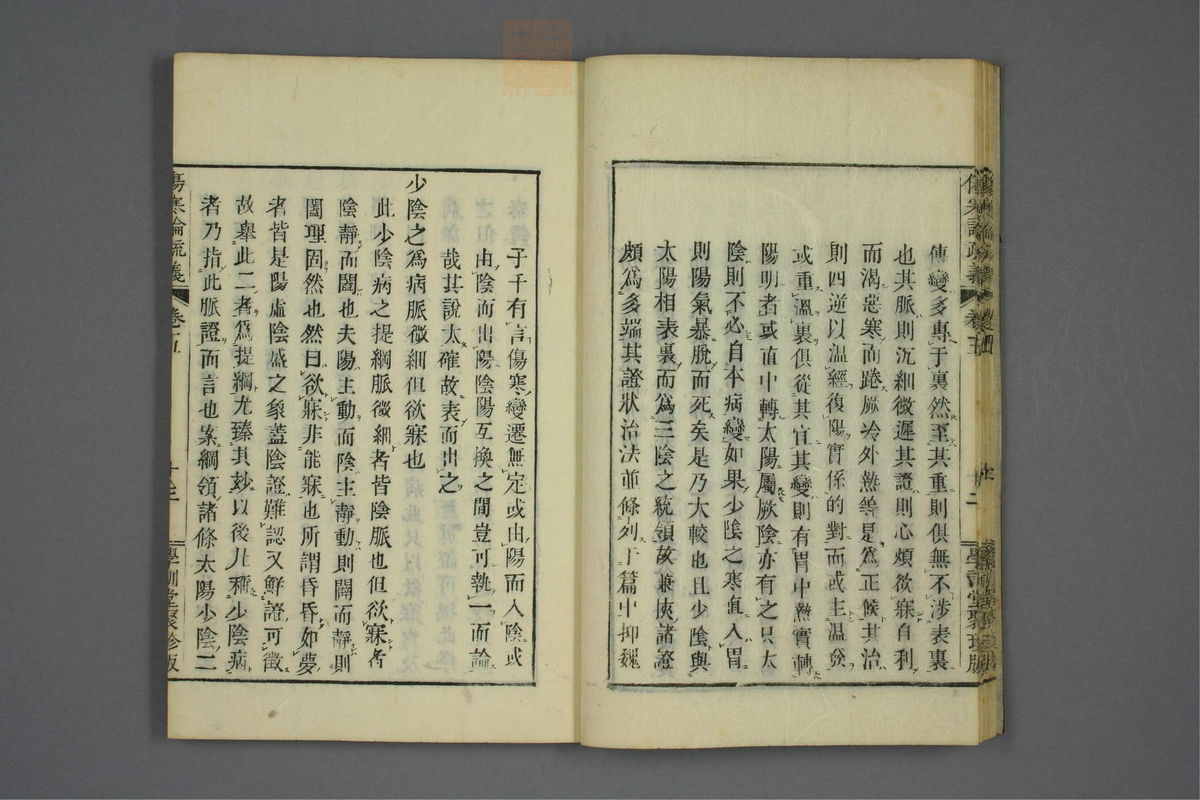 傳變多專于裏然至其重則俱無不渉表裏
也其脈則沉細微遲其證則心煩欲寐自利
而渴惡寒而踡厥冷外熱等是爲正候其治
則四逆以溫經復陽實係的對而或主溫發
或重溫裏俱從其宜其變則有胃中熱實轉
陽明者或直中轉太陽屬厥陰亦有之只太
陰則不必自本病變如果少陰之寒直入胃
則陽氣暴脫而死矣是乃大較也且少陰與
太陽相表裏而爲三陰之統領故兼挾諸證
頗爲多端其證狀治法並條列于篇中抑魏
子千有言傷寒變遷無定或由陽而入陰或
由陰而出陽陰陽互換之間豈可執一而論
哉其說太確故表而出之
少陰之爲病脈微細但欲寐也
此少陰病之提綱脈微細者皆陰脈也但欲寐者
陰靜而闔也夫陽主動而陰主靜動則闢而靜則
闔理固然也然曰欲寐非能寐也所謂昏昏如夢
者皆是陽虛陰盛之象蓋陰證難認又鮮證可徵
故擧此二者爲提綱尤臻其玅以後凡稱少陰病
者乃指此脈證而言也案綱領諸條太陽少陰二
傷寒論疏義
卷五
十三
學訓堂聚珍版